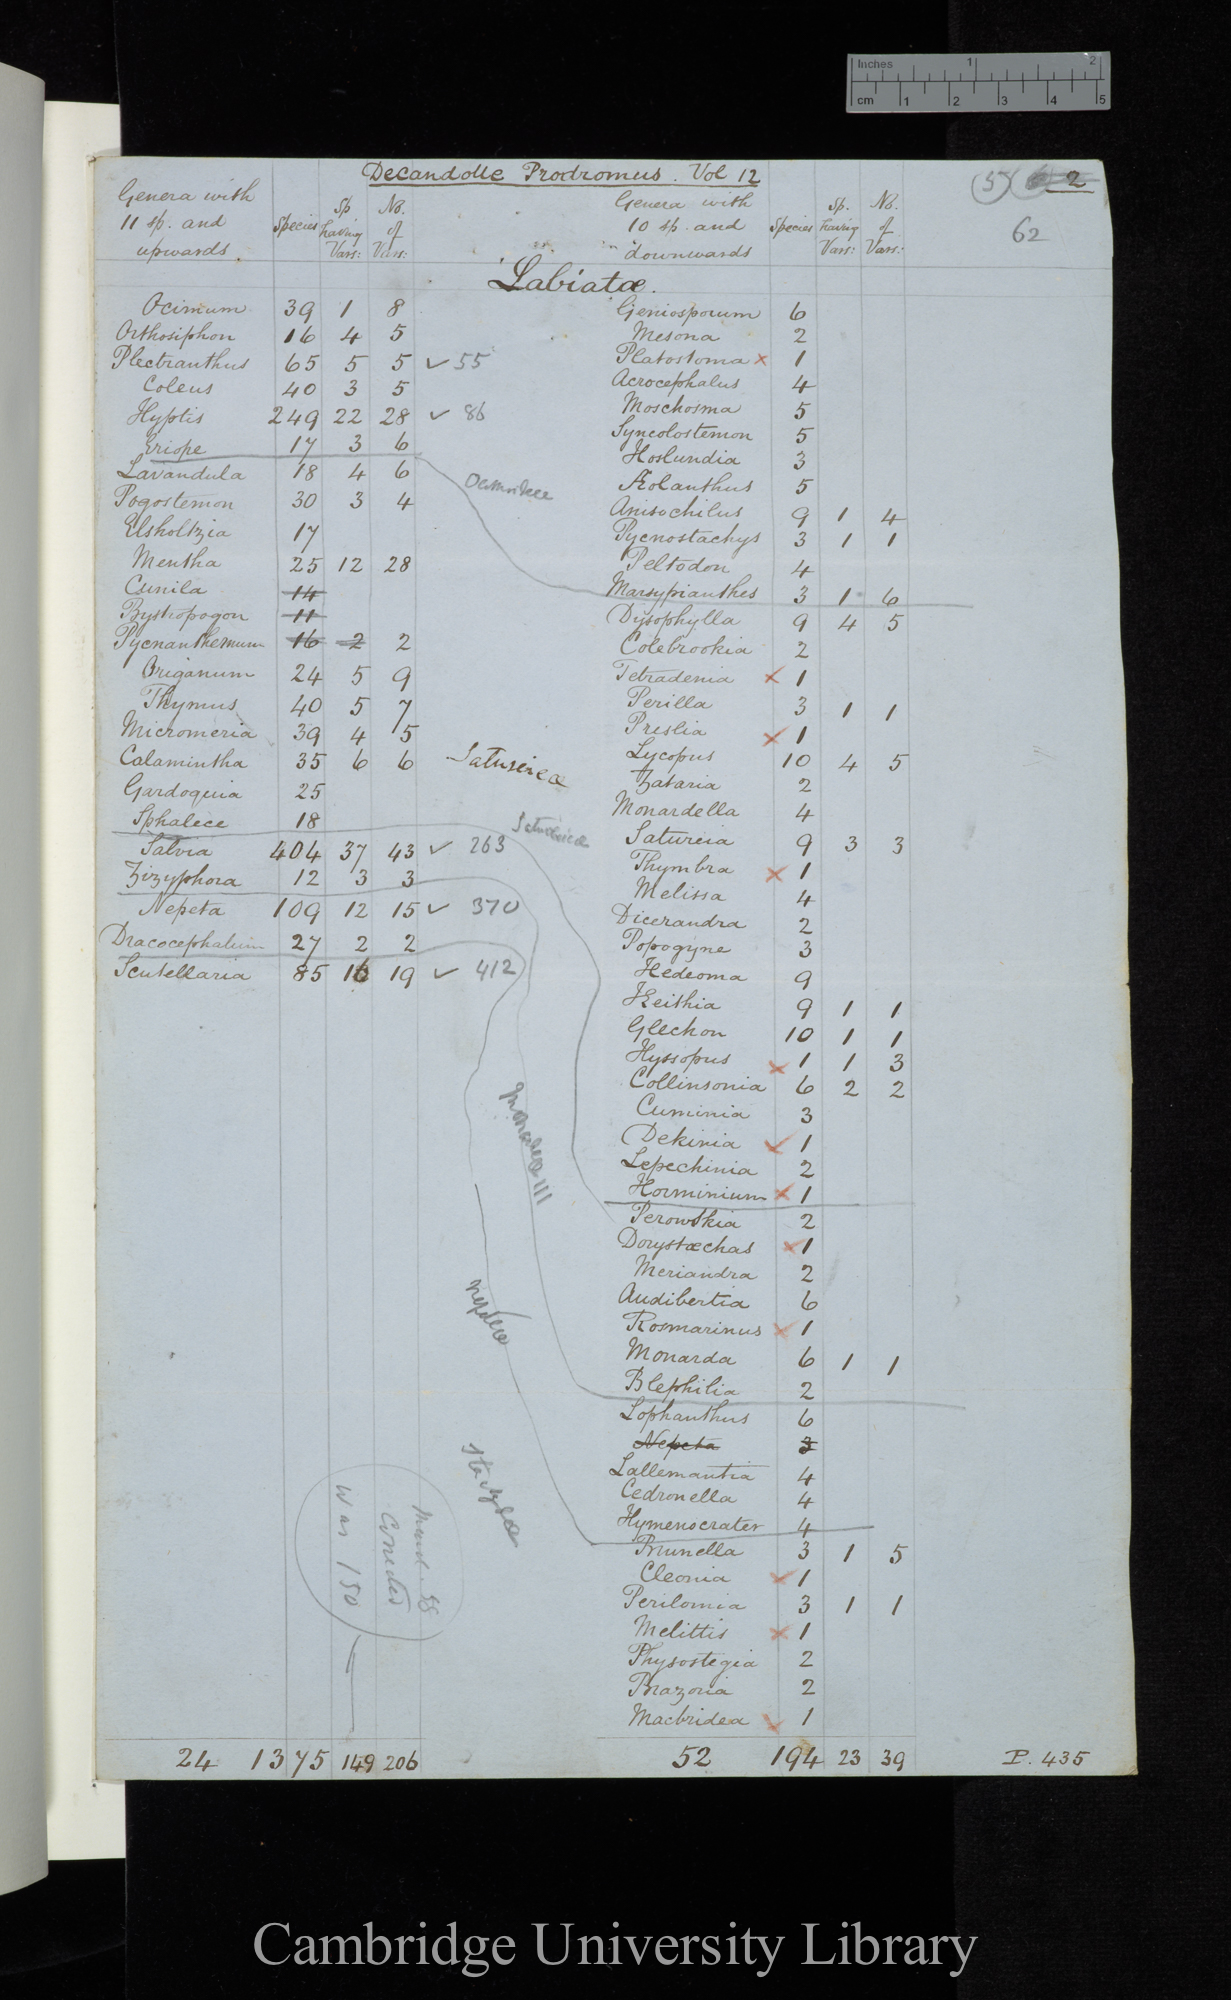 Inches 1 2
cm 1 2 3 4 5
Decandolle Prodromus. Vol 12
5 2
62
Genera with 11 sp. and upwards. Species Sp having Vars: No. of Vars:
Genera with 10 sp. and downwards Species Sp. having Vars: No. of Vars:
Labiatæ.
Ocimum 39 1 8
Orthosiphon 16 4 5
Plectranthus 65 5 5 ✓ 55
Coleus 40 3 5
Hyptis 249 22 28 ✓ 86
Eriope 17 3 6
Lavandula 18 4 6
Pogostemon 30 3 4
Elsholtzia 17
Mentha 25 12 28
Cunila 14
Bystropogon 11
Pycnanthemum 16 2 2
Origanum 24 5 9
Thymus 40 5 7
Micromeria 39 4 5
Calamintha 35 6 6
Gardoquia 25
Sphalece 18
Salvia 404 37 43 ✓ 263
Zizyphora 12 3 3
Nepeta 109 12 15 ✓ 370
Dracocephalum 27 2 2
Scutellaria 85 16 19 ✓ 412
24 1375 149 206
Satureieæ
Stachydeæ
Was 150
Geniosporum 6
Mesona 2
Platostoma x 1
Acrocephalus 4
Moschosma 5
Syncolostemon 5
Hoslundia 3
Æolanthus 5
Anisochilus 9 1 4
Pycnostachys 3 1 1
Peltodon 4
Marsypianthes 3 1 6
Dysophylla 9 4 5
Colebrookia 2
Tetradenia x 1
Perilla 3 1 1
Preslia x 1
Lycopus 10 4 5
Zataria 2
Monardella 4
Satureia 9 3 3
Thymbra x 1
Melissa 4
Dicerandra 2
Popogyne 3
Hedeoma 9
Keithia 9 1 1
Glechon 10 1 1
Hyssopus x 1 1 3
Collinsonia 6 2 2
Cuminia 3
Dekinia x 1
Lepechinia 2
Horminium x 1
Perowskia 2
Dorystæchas x 1
Meriandra 2
Audibertia 6
Rosmarinus x 1
Monarda 6 1 1
Blephilia 2
Lophanthus 6
Nepeta 3
Lallemantia 4
Cedronella 4
Hymenocrater 4
Prunella 3 1 5
Cleonia x 1
Perilomia 3 1 1
Melittis x 1
Physostegia 2
Brazoria 2
Macbridea x 1
52 194 23 39
P. 435
Cambridge University Library